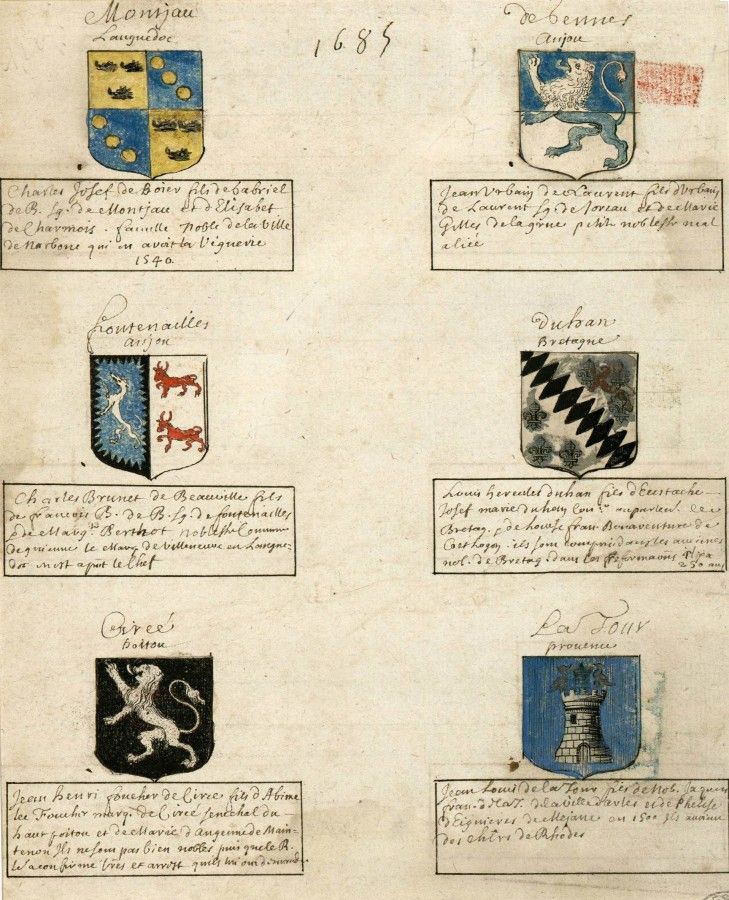 Montjau
Languedoc
Charles Josef de Boier fils de Gabriel
de B. sg. de Montjau et d'Elisabet
de Charmois. famille noble de la ville
de Narbone qui en avait la Viguerie
1540.
1685
de Gennes
Anjou
Jean Urbain de Laurent fils d'Urbain
de Laurent sg. de Joreau et de Marie
Gilles de la grue petite noblesse mal
aliée
fontenailles
anjou
Charles Brunet de Beauville fils
de francois B. de B. sg. de fontenailles
de Marg. Berthot noblesse Commune
le Marq. de Villeneuve en Langue-
doc en est apnt le Chef
du han
Bretagne
Louis hercules du han fils d'Eustache
Josef marie du han au parlem. de
Bretag. fran. Bonaventure de
ils sont compris dans les anciens
nol. de Bretag. dans les reformaons
250 ans
Circé
poitou
Jean henri foucher de Circé fils d'Abime
lec Foucher marq. de Circé senechal du
haut poitou et de Marie d'Angenne de Main-
tenon Ils ne sont pas bien nobles puis que le R.
les a confirmé et arrest
La Tour
provence
Jean Louis de la Tour fils de Nob. Jaques
fran. d. la T. de la Ville d'arles et de
d'Eiguieres de Mejane en 1500 Ils
des chlrs de Rhodes